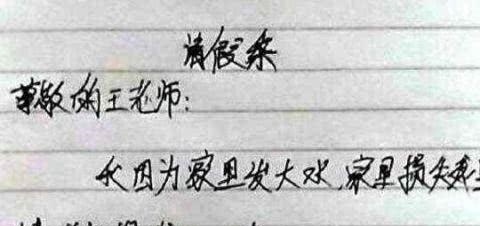 请假条
尊敬的王老师:
我因为家里发大水,家里损失